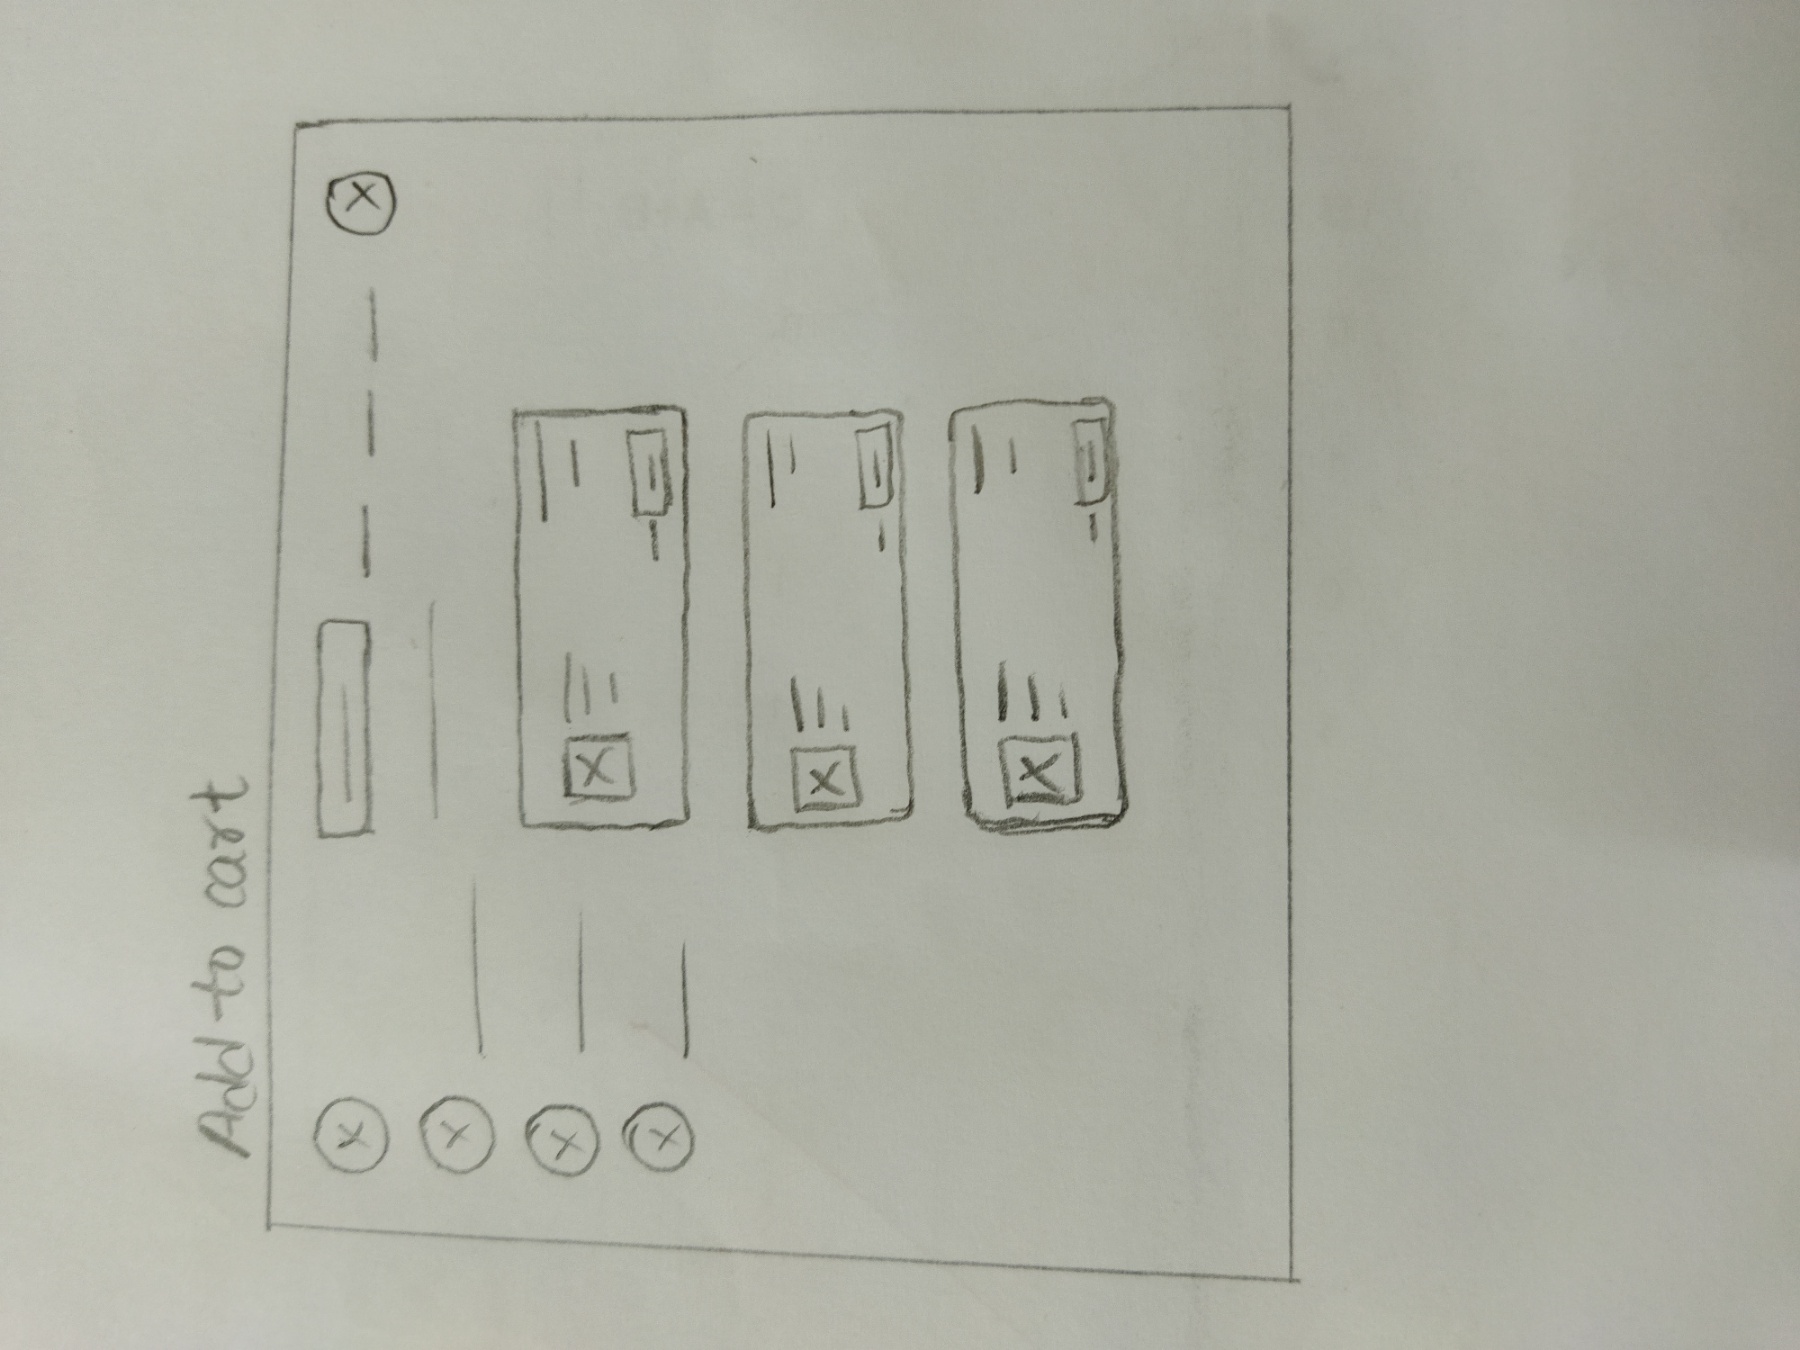 Add to cart